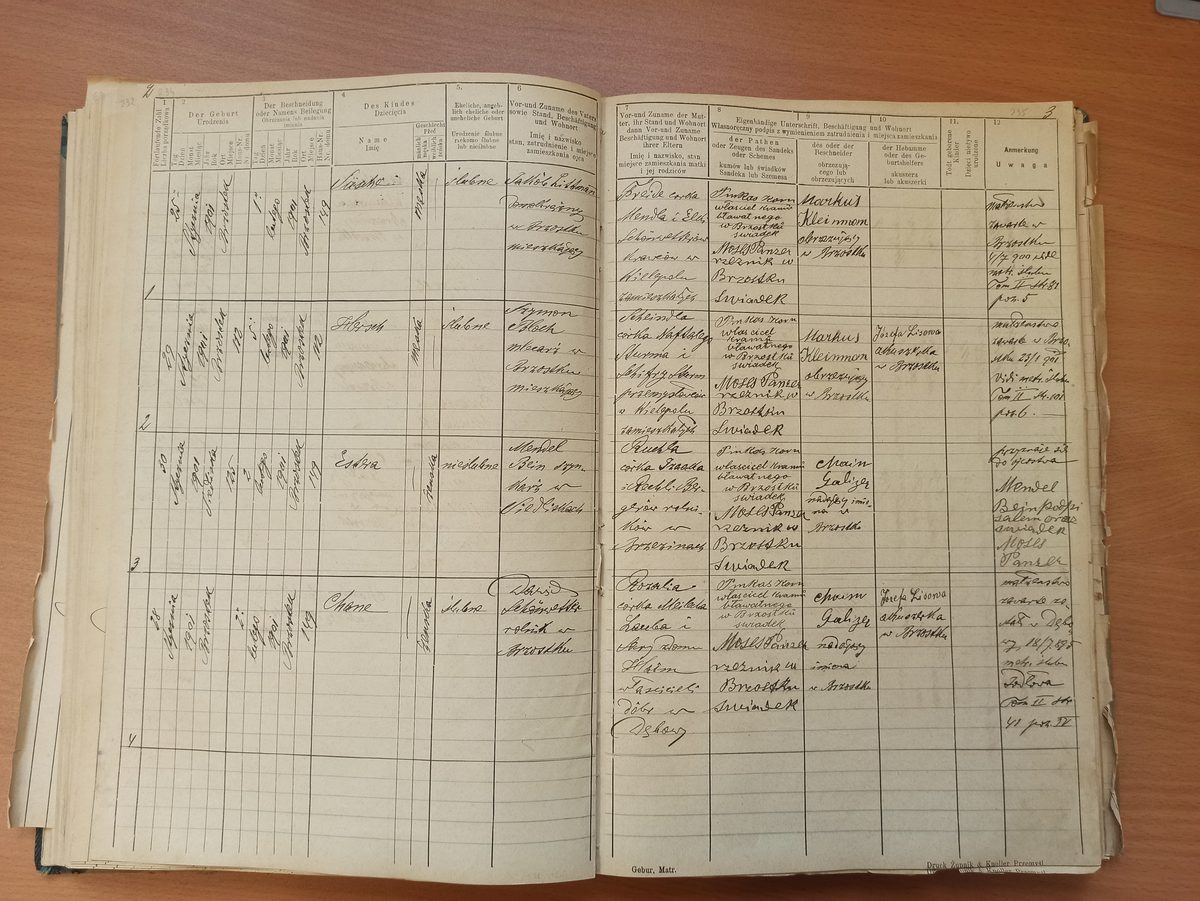 2
3
1
Fortlaufende Zahl
Liczba porządkowa
2
Der Geburt
Urodzenia
Tag
Dzień
Monat
Miesiąc
Jahr
Rok
Ort
Miejsce
Haus-Nr.
Nr. domu
3
Der Beschneidung
oder Namens Beilegung
Obrzezania lub nadania
imienia
Tag
Dzień
Monat
Miesiąc
Jahr
Rok
Ort
Miejsce
Haus-Nr.
Nr. domu
4
Des Kindes
Dziecięcia
Name
Imię
Geschlecht
Płeć
männlich
męska
weiblich
żeńska
5.
Eheliche, angeb-
lich eheliche oder
uneheliche Geburt
Urodzenie ślubne
rzekomo ślubne
lub nieślubne
6
Vor-und Zuname des Vaters
sowie Stand, Beschäftigung
und Wohnort
Imię i nazwisko
stan, zatrudnienie i miejsce
zamieszkania ojca
7
Vor-und Zuname der Mut-
ter, ihr Stand und Wohnort
dann Vor-und Zuname
Beschäftigung und Wohnort
ihrer Eltern
Imię i nazwisko, stan
miejsce zamieszkania matki
i jej rodziców
8
9
10
Eigenhändige Unterschrift, Beschäftigung und Wohnort
Własnoręczny podpis z wymienieniem zatrudnienia i miejsca zamieszkania
der Pathen
oder Zeugen des Sandeks
oder Schemes
kumów lub świadków
Sandeka lub Szemesa
des oder der
Beschneider
obrzezują-
cego lub
obrzezujących
der Hebamme
oder des Ge-
burtshelfers
akuszera
lub akuszerki
11.
Todt geborene
Kinder
Dzieci nieżywo
urodzone
12
Anmerkung
Uwaga
1
25
Stycznia
1901
Brzostek
1
lutego
1901
Brzostek
149
męska
ślubne
w Brzostku
mieszkający
Freide córka
Mendla i
krawców w
Wielopolu
zamieszkałych
Pinkas Horn
właściciel kramu
bławatnego
w Brzostku
świadek
Moses Panzer
rzeźnik w
Brzostku
Swiadek
Markus
Kleinmom
obrzezujący
w Brzostku
małżeństwo
zawarte w
Brzostku
6/7 900 vide
metr. ślubu
Tom II str. 81
poz. 5
2
29
Stycznia
1901
Brzostek
112
5
lutego
1901
Brzostek
112
Hersch
męska
ślubne
Szymon
Blech
mleczarz w
Brzostku
mieszkający
Scheindla
córka Naftalego
Sturma i
w Wielopolu
zamieszkałych
Pinkas Horn
właściciel
kramu
bławatnego
w Brzostku
świadek
Moses Panzer
rzeźnik w
Brzostku
Swiadek
Markus
Kleinmom
obrzezujący
w Brzostku
Józefa Lisowa
akuszerka
w Brzostku
małżeństwo
zawarte w Brzo-
stku 23/1 901
Vidi metr. ślubu
Tom II str. 101
poz. 6
3
30
Stycznia
1901
125
2
lutego
1901
Brzostek
149
Estera
żeńska
nieślubne
Mendel
Bein szyn-
karz w
Siedliskach
Ruchla
córka Izaaka
i Rachli Ber-
gerów rolni-
ków w
Brzezinach
Pinkas Horn
właściciel kramu
bławatnego
w Brzostku
świadek
Moses Panzer
rzeźnik w
Brzostku
Swiadek
Chaim
Galizer
nadający imio-
na w
Brzostku
przyznaje się
do ojcostwa
Mendel
Bein podpi
sałem oraz
świadek
Moses
Panzer
4
28
Stycznia
1901
Brzostek
2
lutego
1901
Brzostek
149
Chane
żeńska
ślubne
Dawid
Schönwetter
rolnik w
Brzostku
Rozalia
córka Meilecha
Lauba i
właścicieli
dóbr w
Dębowy
Pinkas Horn
właściciel kramu
bławatnego
w Brzostku
świadek
Moses Panzer
rzeźnik w
Brzostku
Swiadek
Chaim
Galizer
nadający
imiona
w Brzostku
Józefa Lisowa
akuszerka
w Brzostku
małżeństwo
zawarte zo-
stało w Dębo-
wy 18/7 895
metr. ślubu
Jodłowa
Tom II str.
41 poz. IV
Gebur. Matr.
Druck Żupnik & Knoller Przemyśl